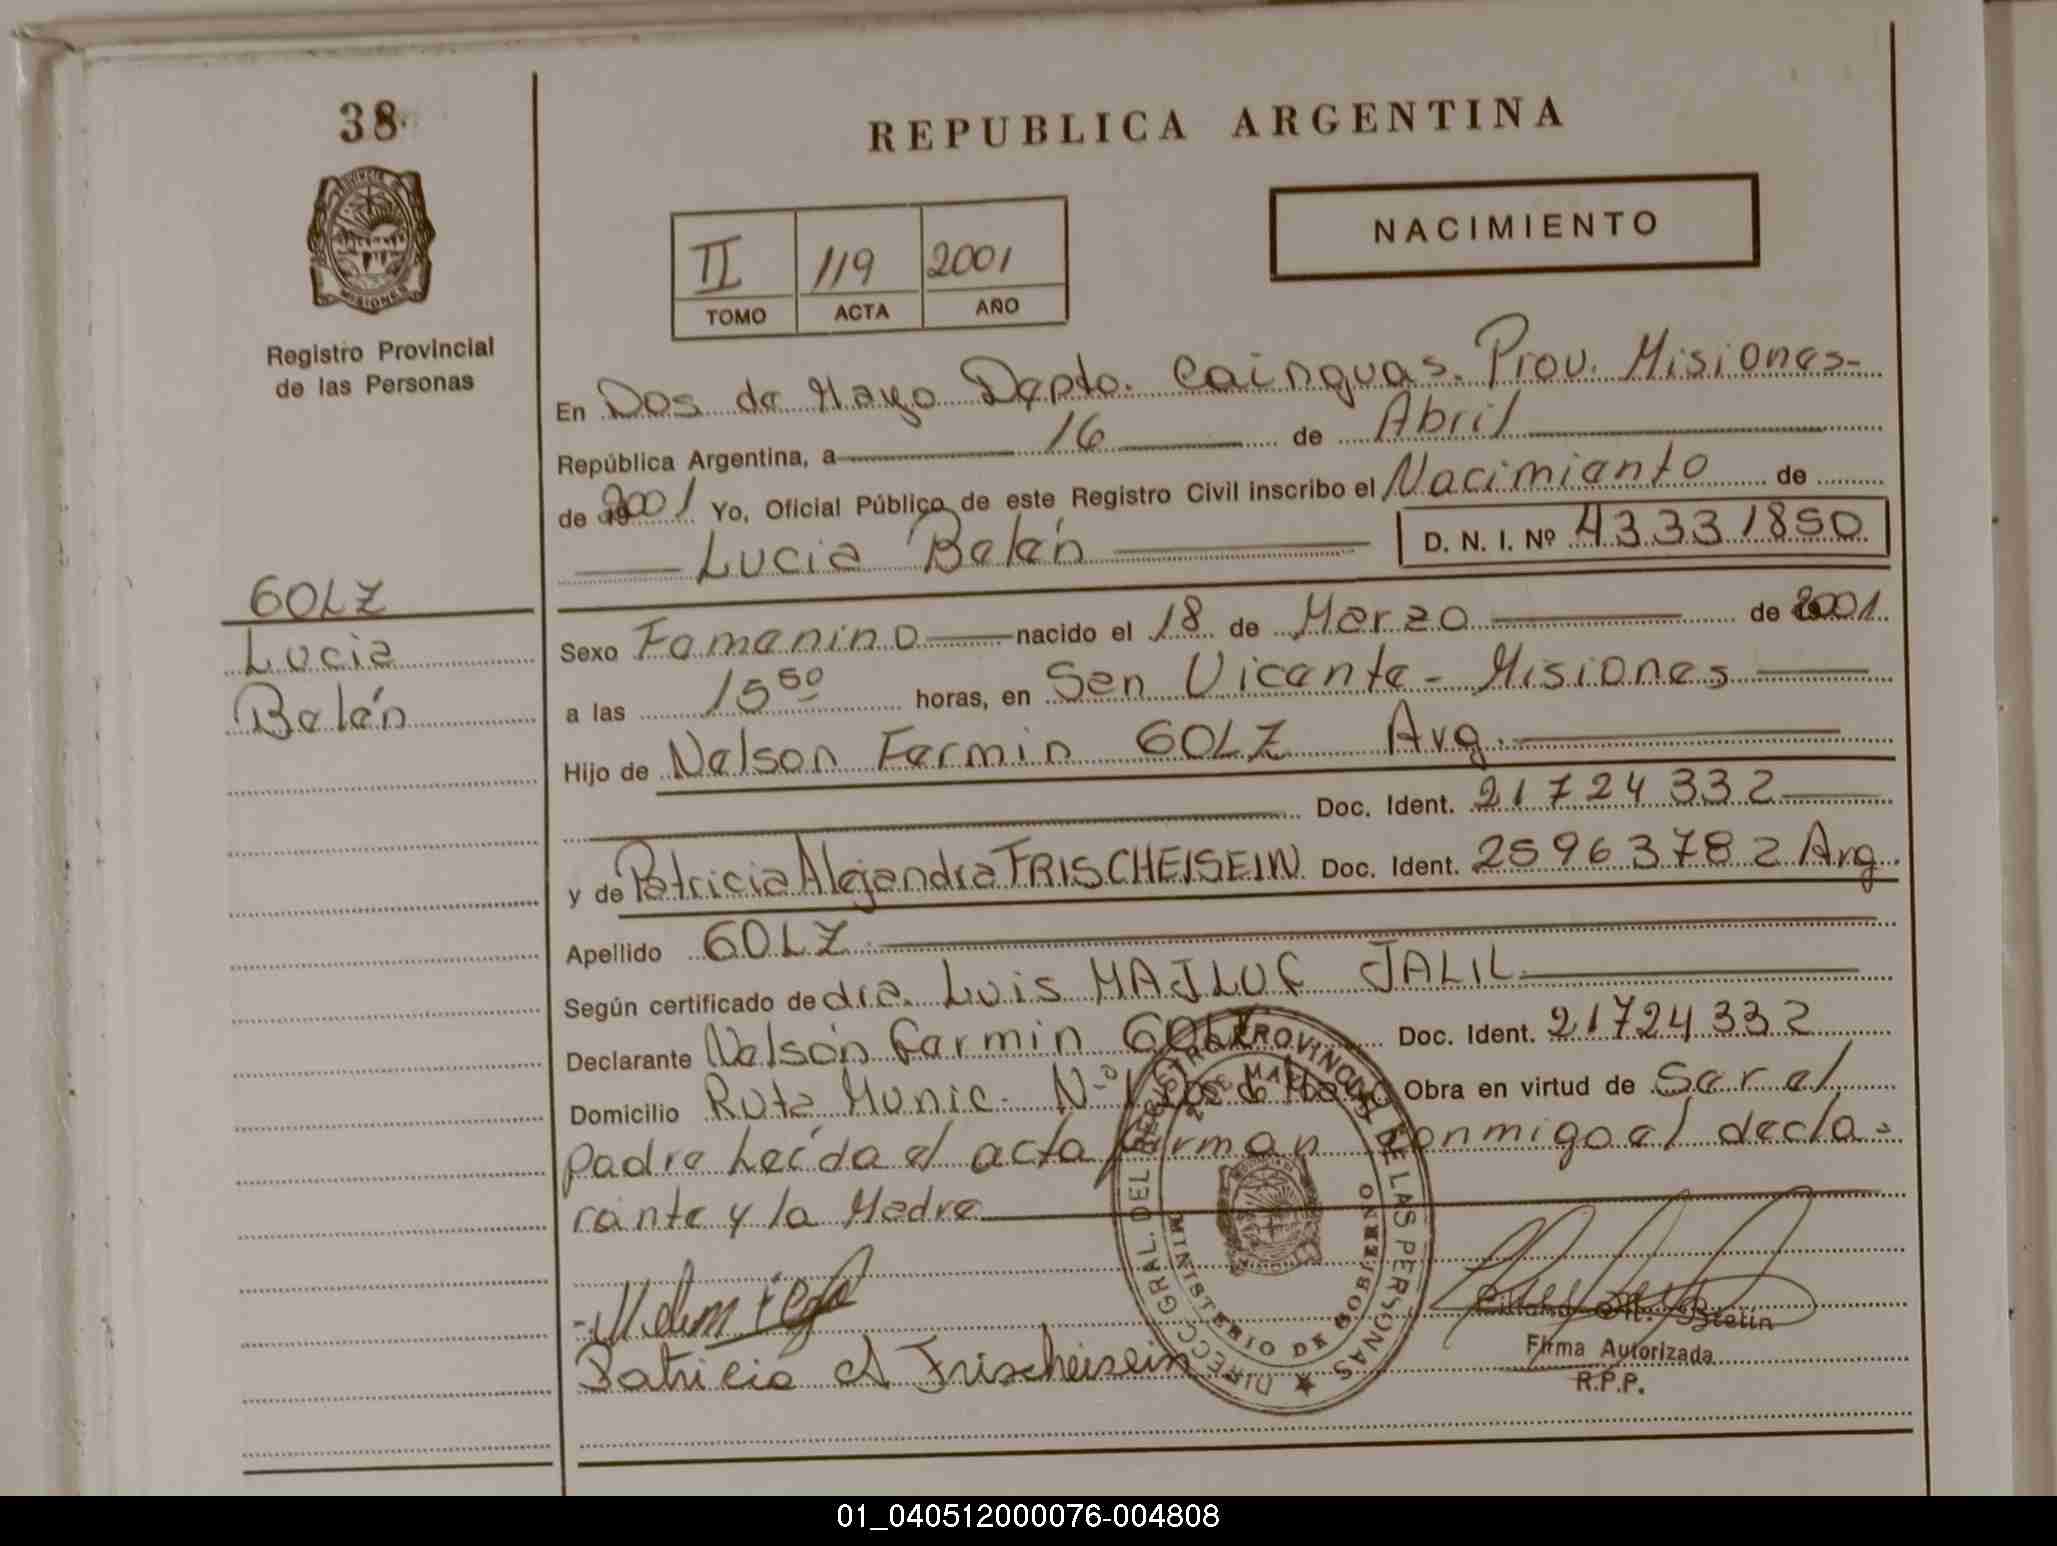 38
REPUBLICA ARGENTINA
NACIMIENTO
II 119 2001
TOMO ACTA AÑO
MISIONES
Registro Provincial
de las Personas
En Dos de Mayo Depto. Cainguas. Prov. Misiones-
República Argentina, a 16 de Abril
de 2001 Yo, Oficial Público de este Registro Civil inscribo el Nacimiento de
Lucia Belén D. N. I. Nº 43331850
GOLZ
Lucia
Belén
Sexo Femenino nacido el 18 de Marzo de 2001.
a las 15 50 horas, en San Vicente - Misiones
Hijo de Nelson Fermin GOLZ Arg.
Doc. Ident. 21724332
y de Patricia Alejandra FRISCHEISEIN Doc. Ident. 25963782 Arg.
Apellido GOLZ
Según certificado de dra. Luis MAJLUF JALIL
Declarante Nelson Fermin GOLZ Doc. Ident. 21724332
Domicilio Ruta Munic. Nº 1 Dos de Mayo Obra en virtud de Ser el
padre Leída el acta firman conmigo el decla-
rante y la Madre
DIRECC. GRAL. DEL REGISTRO PROVINCIAL DE LAS PERSONAS
2 DE MAYO
MINISTERIO DE GOBIERNO
Patricia A Frischeisein
Firma Autorizada
R.P.P.
01_040512000076-004808